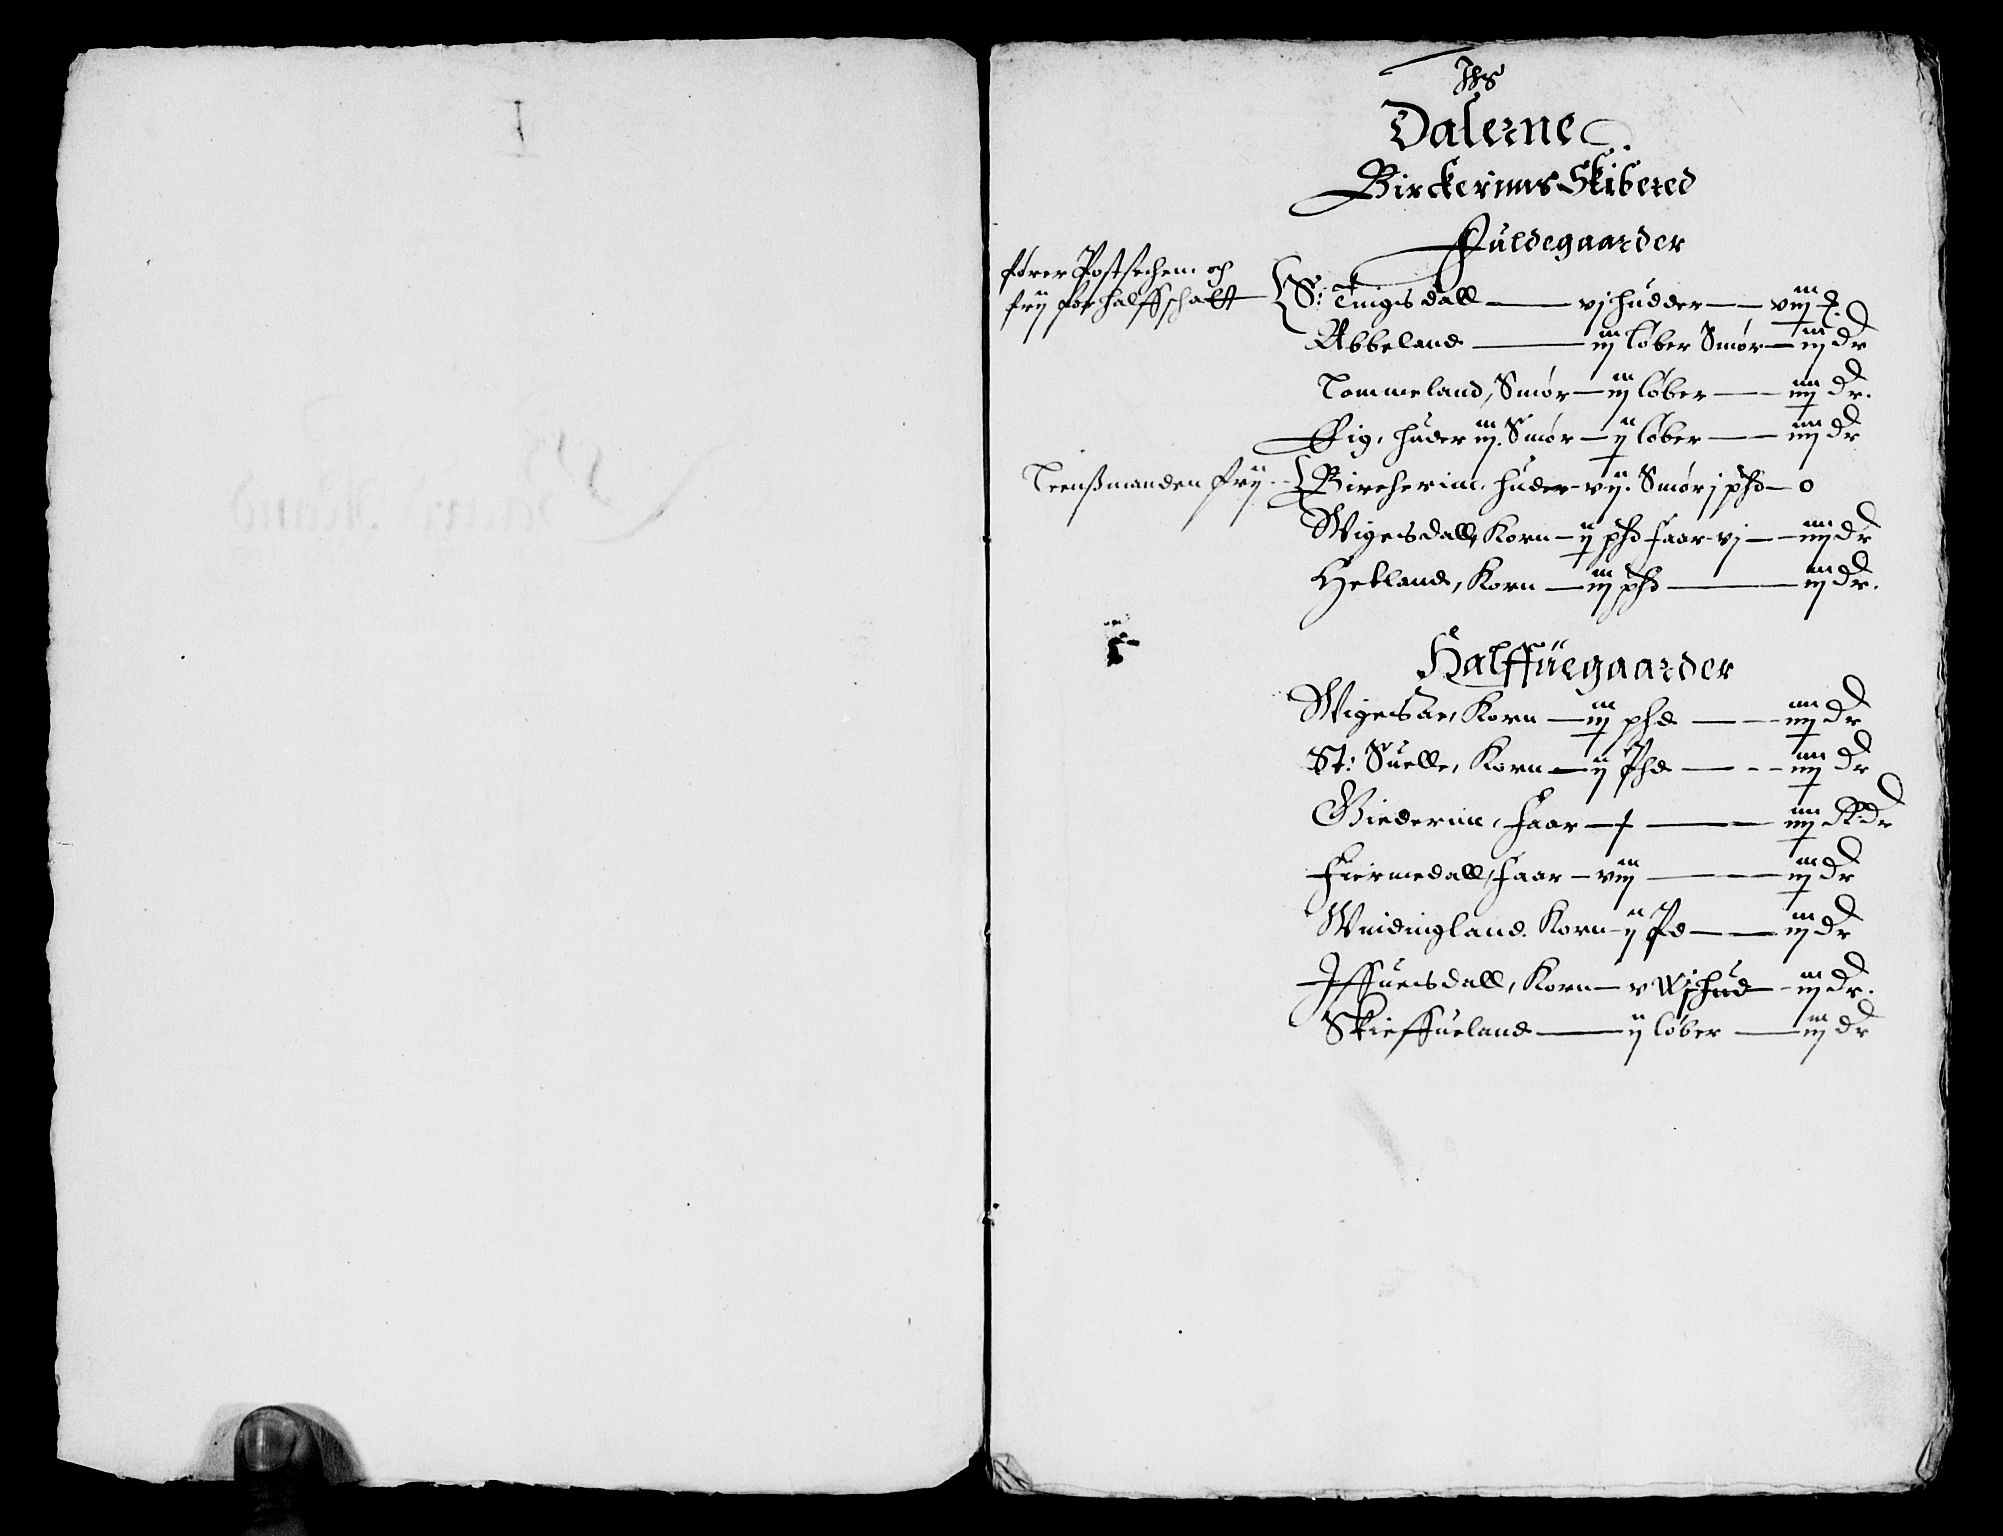 Ihs
Dalerne
Birckerims Skibered
Fuldegaarder
fører Postsechen och
frij for halff schatt
S: Tingisdall — vj huder — 
Abbeland — iij løber Smør — iij dr
Tommeland, Smør — iij løber — iiij dr.
Eig, huder iij. Smør — ij løber — iiij dr
Leenßmanden frij
Bircherim, huder — vij. Smør j pd — 0
Wigesdall, Korn — ij pd faar vj — iiij dr
Hetland, Korn — iij pd — iij dr.
Halffuegaarder
Wigesaa, Korn — iij pd — iiij dr
St: Suelle, Korn — ij Pd — iiij dr
Giederim, faar — — iiij Rdr
Fiermedall, faar — viij — iij dr
Windingland. Korn — ij Pd — iij dr
Iffuersdall, Korn — v hud — iij dr.
Skieffueland — ij løber — iij dr